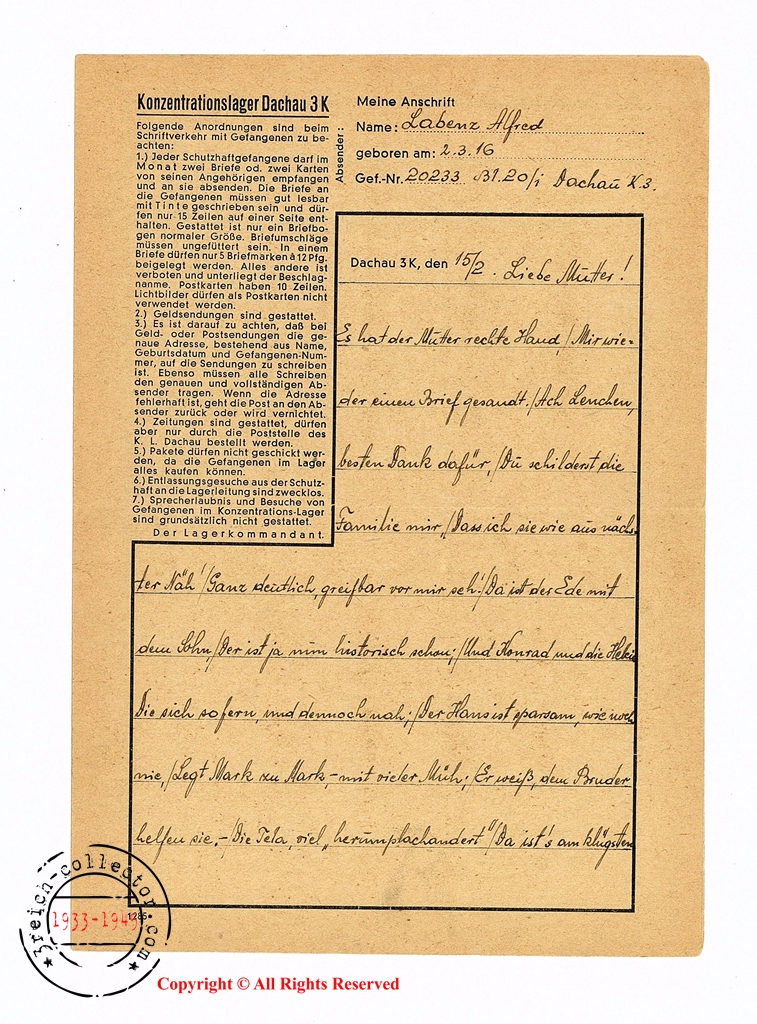 Konzentrationslager Dachau 3 K
Folgende Anordnungen sind beim
Schriftverkehr mit Gefangenen zu be-
achten:
1.) Jeder Schutzhaftgefangene darf im
Monat zwei Briefe od. zwei Karten
von seinen Angehörigen empfangen
und an sie absenden. Die Briefe an
die Gefangenen müssen gut lesbar
mit Tinte geschrieben sein und dür-
fen nur 15 Zeilen auf einer Seite ent-
halten. Gestattet ist nur ein Briefbo-
gen normaler Größe. Briefumschläge
müssen ungefüttert sein. In einem
Briefe dürfen nur 5 Briefmarken à 12 Pfg.
beigelegt werden. Alles andere ist
verboten und unterliegt der Beschlag-
nanme. Postkarten haben 10 Zeilen.
Lichtbilder dürfen als Postkarten nicht
verwendet werden.
2.) Geldsendungen sind gestattet.
3.) Es ist darauf zu achten, daß bei
Geld- oder Postsendungen die ge-
naue Adresse, bestehend aus Name,
Geburtsdatum und Gefangenen-Num-
mer, auf die Sendungen zu schreiben
ist. Ebenso müssen alle Schreiben
den genauen und vollständigen Ab-
sender tragen. Wenn die Adresse
fehlerhaft ist, geht die Post an den Ab-
sender zurück oder wird vernichtet.
4.) Zeitungen sind gestattet, dürfen
aber nur durch die Poststelle des
K. L. Dachau bestellt werden.
5.) Pakete dürfen nicht geschickt wer-
den, da die Gefangenen im Lager
alles kaufen können.
6.) Entlassungsgesuche aus der Schutz-
haft an die Lagerleitung sind zwecklos.
7.) Sprecherlaubnis und Besuche von
Gefangenen im Konzentrations-Lager
sind grundsätzlich nicht gestattet.
Der Lagerkommandant.
Absender:
Meine Anschrift
Name: Labenz Alfred
geboren am: 2.3.16
Gef.-Nr. 20233 Bl. 20/i Dachau K.3.
Dachau 3 K, den 15/2. Liebe Mutter!
Es hat der Mutter rechte Hand,/Mir wie-
der einen Brief gesandt./Ach Lenchen,
besten Dank dafür,/Du schilderst die
Familie mir,/Dass ich sie wie aus näch-
ter Näh'/Ganz deutlich, greifbar vor mir seh'./Da ist der Ede mit
dem Sohn,/Der ist ja nun historisch schon;/Und Konrad und die
Die sich so fern, und dennoch nah;/Der Hans ist sparsam, wie noch
nie,/Legt Mark zu Mark,- mit vieler Müh;/Er weiß, dem Bruder
helfen sie.-/Die Tela, viel „herumplachandert"/Da ist's am klügsten
1286
3reich-collector.com
1933-1945
Copyright © All Rights Reserved